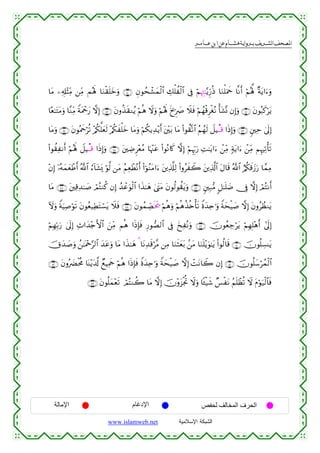 المصحف الشريف برواية هشام عن ابن عامر
وَءَايَةٌ لَّهُمْ أَنَّا حَمَلْنَا ذُرِّيَّٰتِهِمْ فِى ٱلْفُلْكِ ٱلْمَشْحُونِ ۝ وَخَلَقْنَا لَهُم مِّن مِّثْلِهِۦ مَا
يَرْكَبُونَ ۝ وَإِن نَّشَأْ نُغْرِقْهُمْ فَلَا صَرِيخَ لَهُمْ وَلَا هُمْ يُنقَذُونَ ۝ إِلَّا رَحْمَةً مِّنَّا وَمَتَٰعًا
إِلَىٰ حِينٍ ۝ وَإِذَا قِيلَ لَهُمُ ٱتَّقُوا۟ مَا بَيْنَ أَيْدِيكُمْ وَمَا خَلْفَكُمْ لَعَلَّكُمْ تُرْحَمُونَ ۝ وَمَا
تَأْتِيهِم مِّنْ ءَايَةٍ مِّنْ ءَايَٰتِ رَبِّهِمْ إِلَّا كَانُوا۟ عَنْهَا مُعْرِضِينَ ۝ وَإِذَا قِيلَ لَهُمْ أَنفِقُوا۟
مِمَّا رَزَقَكُمُ ٱللَّهُ قَالَ ٱلَّذِينَ كَفَرُوا۟ لِلَّذِينَ ءَامَنُوٓا۟ أَنُطْعِمُ مَن لَّوْ يَشَآءُ ٱللَّهُ أَطْعَمَهُۥٓ إِنْ
أَنتُمْ إِلَّا فِى ضَلَٰلٍ مُّبِينٍ ۝ وَيَقُولُونَ مَتَىٰ هَٰذَا ٱلْوَعْدُ إِن كُنتُمْ صَٰدِقِينَ ۝ مَا
يَنظُرُونَ إِلَّا صَيْحَةً وَٰحِدَةً تَأْخُذُهُمْ وَهُمْ يَخَصِّمُونَ ۝ فَلَا يَسْتَطِيعُونَ تَوْصِيَةً وَلَآ
إِلَىٰٓ أَهْلِهِمْ يَرْجِعُونَ ۝ وَنُفِخَ فِى ٱلصُّورِ فَإِذَا هُم مِّنَ ٱلْأَجْدَاثِ إِلَىٰ رَبِّهِمْ
يَنسِلُونَ ۝ قَالُوا۟ يَٰوَيْلَنَا مَنۢ بَعَثَنَا مِن مَّرْقَدِنَا هَٰذَا مَا وَعَدَ ٱلرَّحْمَٰنُ وَصَدَقَ
ٱلْمُرْسَلُونَ ۝ إِن كَانَتْ إِلَّا صَيْحَةً وَٰحِدَةً فَإِذَا هُمْ جَمِيعٌ لَّدَيْنَا مُحْضَرُونَ ۝
فَٱلْيَوْمَ لَا تُظْلَمُ نَفْسٌ شَيْـًٔا وَلَا تُجْزَوْنَ إِلَّا مَا كُنتُمْ تَعْمَلُونَ ۝
الحرف المخالف لحفص الإدغام الإمالة
الشبكة الإسلامية www.islamweb.net